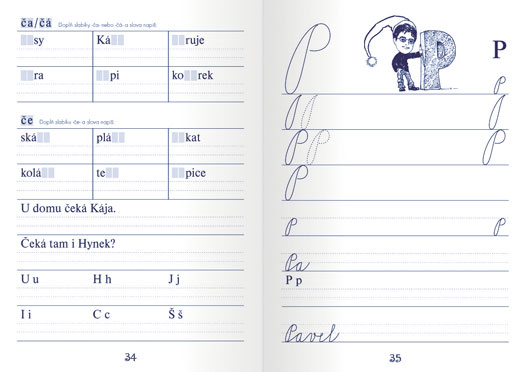 ča/čá Doplň slabiky ča nebo čá a slova napiš.
sy Ká ruje
ra pi ko rek
če Doplň slabiku če a slova napiš.
ská plá kat
kolá te pice
U domu čeká Kája.
Čeká tam i Hynek?
U u H h J j
I i C c Š š
34
P P P
P
P P P
P P P P
P
P P
Pa
P p
Pavel
35